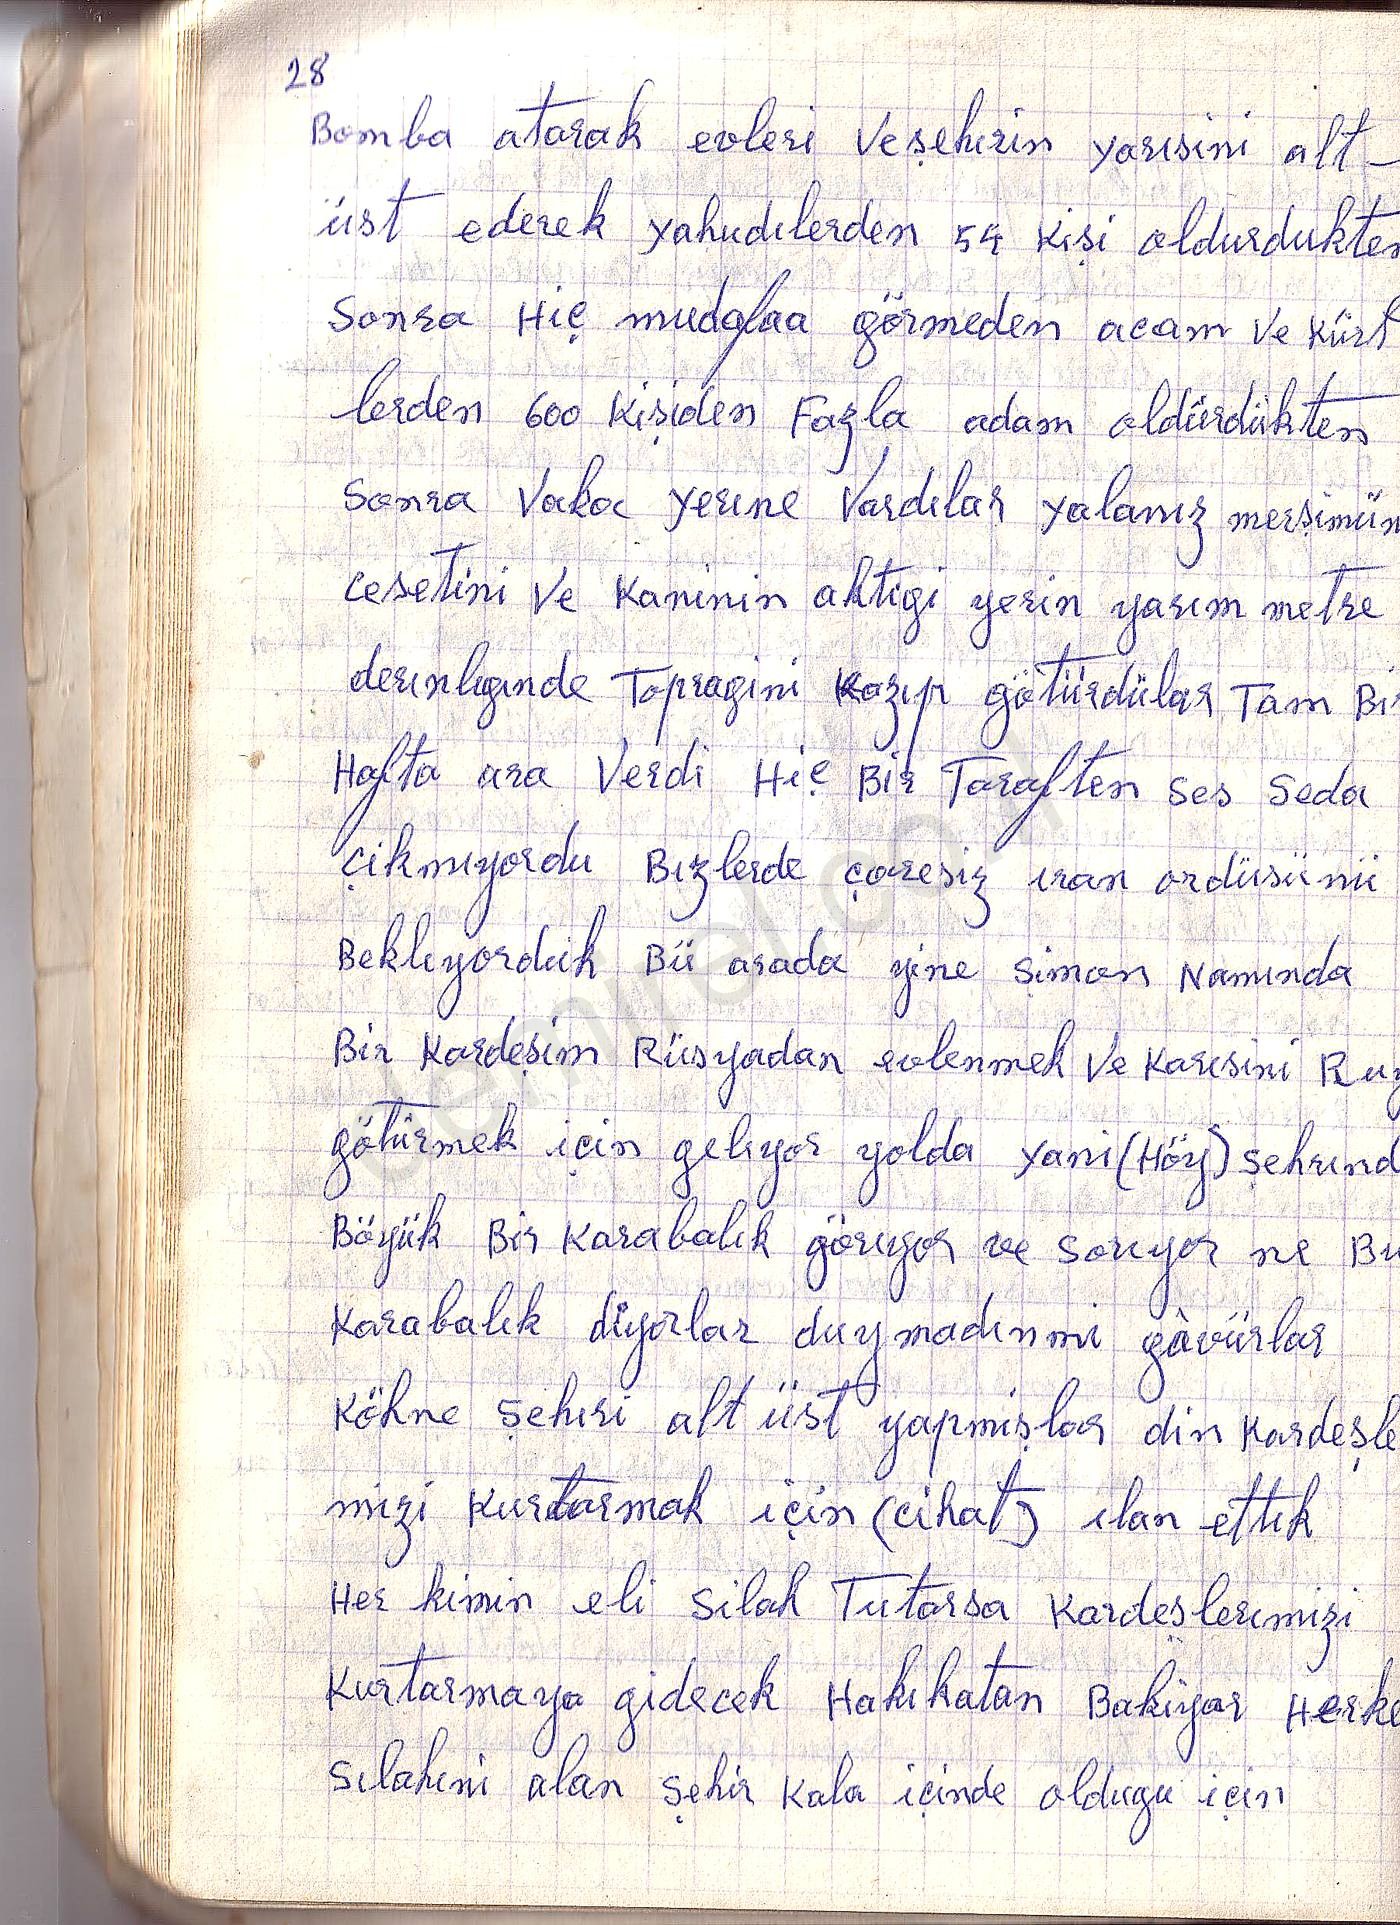 28
Bomba atarak evleri Veşehırin yarısini alt-
üst ederek yahudılerden 54 kişi oldurdukten
Sonra Hiç mudafaa görmeden acam Ve Kürt
lerden 600 Kişiden Fazla adam oldürdükten
Sonra Vaka yerıne Vardılar yalanız merşimün
cesetini Ve Kaninin aktigi yerin yarım metre
derınlıgınde Topragini Kazıp götürdülar Tam Bir
Hafta ara Verdi Hiç Bir Taraften ses Seda
çikmıyordu Bızlerde çaresiz ıran ordüsünü
Beklıyorduk Bü arada yine Şimon Namında
Bir Kardeşim Rüsyadan evlenmek Ve Karısini
götürmek için gelıyor yolda yani (Höy) şehrınd
Böyük Bir Karabalık görıyor ve Sorıyor ne Bu
Karabalık diyorlar duymadınmi gâvürlar
Köhne Şehıri alt üst yapmişlar din Kardeşle
mizi Kurtarmak için (cihat) ılan ettık
Her kimin eli Silah Tutarsa Kardeşlerımizi
Kurtarmaya gidecek Hakıkatan Bakiyar Herke
Sılahıni alan Şehir Kala içinde oldugu için
demirel.com